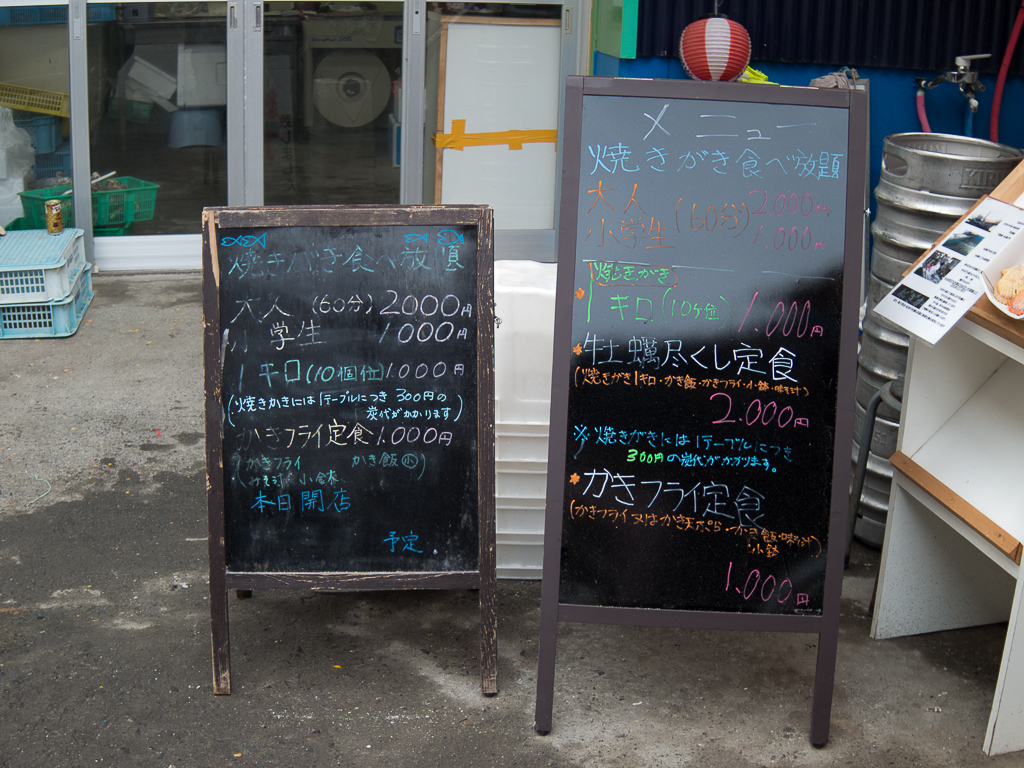 焼きがき食べ放題
大人 (60分) 2000円
小学生 1000円
1キロ(10個位)1000円
(焼きがきには1テーブルにつき300円の
炭代がかかります)
かきフライ定食 1.000円
(かきフライ かき飯(小)
みそ汁 小鉢)
本日開店
予定
メニュー
焼きがき食べ放題
大人 (60分) 2.000円
小学生 1.000円
焼きがき
1キロ(10個位) 1.000円
牡蠣尽くし定食
(焼きがき1キロ・かき飯・かきフライ・小鉢・味そ汁)
2.000円
※焼きがきには1テーブルにつき
300円の炭代がかかります。
かきフライ定食
(かきフライ又はかき天ぷら・かき飯・味そ汁
小鉢)
1.000円
KIRIN